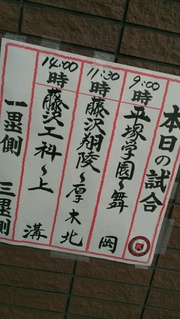 本日の試合
9:00時 平塚学園〜舞岡
11:30時 藤沢翔陵〜厚木北
14:00時 藤沢工科〜上溝
一塁側 三塁側